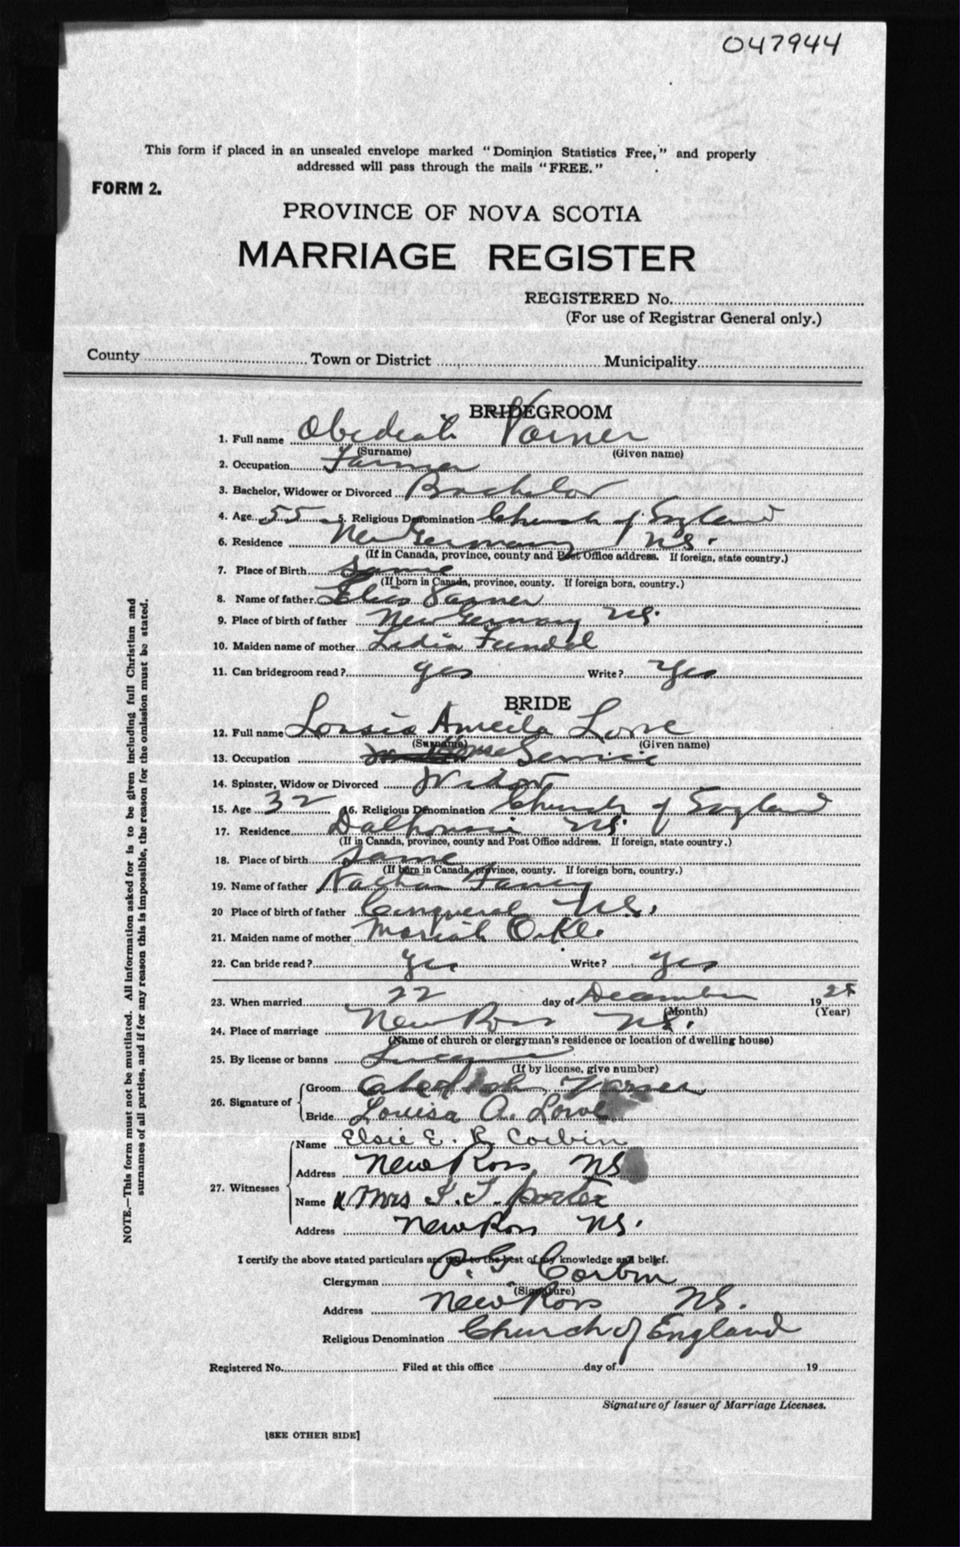 047944
This form if placed in an unsealed envelope marked "Dominion Statistics Free," and properly
addressed will pass through the mails "FREE."
FORM 2.
PROVINCE OF NOVA SCOTIA
MARRIAGE REGISTER
REGISTERED No.
(For use of Registrar General only.)
County Town or District Municipality
BRIDEGROOM
1. Full name Obediah Varner
(Surname) (Given name)
2. Occupation Farmer
3. Bachelor, Widower or Divorced Bachelor
4. Age 55 5. Religious Denomination Church of England
6. Residence New Germany NS.
(If in Canada, province, county and Post Office address. If foreign, state country.)
7. Place of Birth Same
(If born in Canada, province, county. If foreign born, country.)
8. Name of father Elias Varner
9. Place of birth of father New Germany NS.
10. Maiden name of mother Lidia
11. Can bridegroom read? yes Write? Yes
BRIDE
12. Full name Ameila Love
(Surname) (Given name)
13. Occupation House Service
14. Spinster, Widow or Divorced Widow
15. Age 32 16. Religious Denomination Church of England
17. Residence Dalhousie NS.
(If in Canada, province, county and Post Office address. If foreign, state country.)
18. Place of birth Same
(If born in Canada, province, county. If foreign born, country.)
19. Name of father Nathan
20 Place of birth of father NS.
21. Maiden name of mother Mariah
22. Can bride read? yes Write? yes
23. When married 22 day of December 19
(Month) (Year)
24. Place of marriage New Ross NS.
(Name of church or clergyman's residence or location of dwelling house)
25. By license or banns
(If by license, give number)
26. Signature of Groom Obediah Varner
Bride Louisa A. Love
27. Witnesses Name Elsie E. R. Corbin
Address New Ross NS
Name Mrs Porter
Address New Ross NS.
I certify the above stated particulars are true to the best of my knowledge and belief.
Clergyman Corbin
(Signature)
Address New Ross NS.
Religious Denomination Church of England
Registered No. Filed at this office day of 19
Signature of Issuer of Marriage Licenses.
[SEE OTHER SIDE]
NOTE.—This form must not be mutilated. All information asked for is to be given including full Christian and
surnames of all parties, and if for any reason this is impossible, the reason for the omission must be stated.